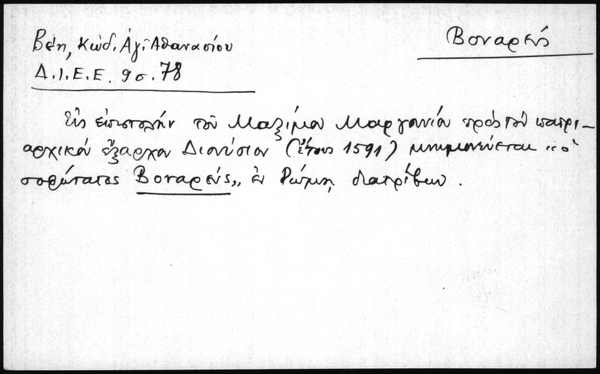 Βέη, Κώδ. Ἁγ. Ἀθανασίου
Βοναρεύς
Δ.Ι.Ε.Ε. 9 σ. 78
Εἰς ἐπιστολήν τοῦ Μαξίμου Μαργουνίου πρός τόν πατρι-
αρχικόν ἔξαρχον Διονύσιον (ἔτους 1591) μνημονεύεται "ὁ
σοφώτατος Βοναρεύς,, ἐν Ρώμῃ διατρίβων.